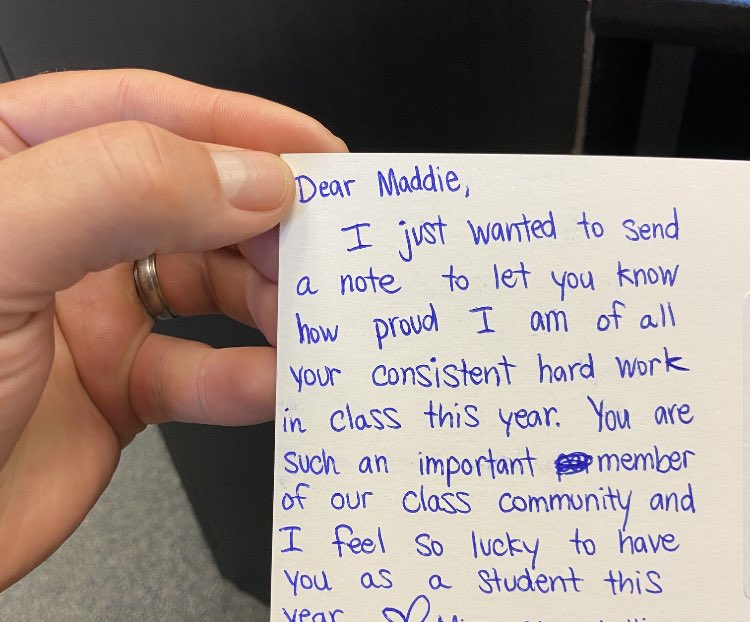 Dear Maddie,
I just wanted to send
a note to let you know
how proud I am of all
your consistent hard work
in class this year. You are
such an important member
of our class community and
I feel so lucky to have
you as a student this
year.